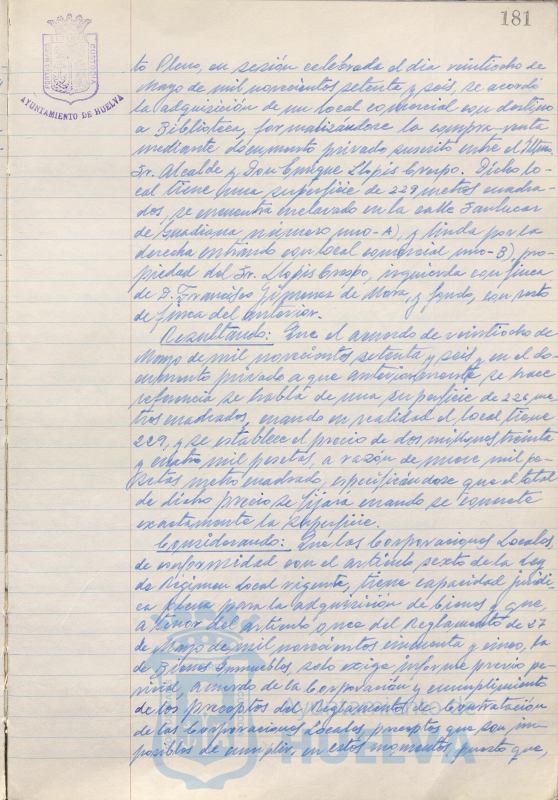 181
AYUNTAMIENTO DE HUELVA
to Pleno, en sesión celebrada el dia veintiocho de
Mayo de mil novecientos setenta y seis, se acordó
la adquisición de un local comercial con destino
a Biblioteca, formalizándose la compra-venta
mediante documento privado suscrito entre el Iltmo.
Sr. Alcalde y Don Enrique Llopis Crespo. Dicho lo-
cal tiene una superficie de 229 metros cuadra-
dos, se encuentra enclavado en la calle Sanlucar
de Guadiana, número uno-A), y linda por la
derecha entrando con local comercial uno-B), pro-
piedad del Sr. Llopis Crespo, izquierda con finca
de D. Francisco Jimenez de Mora, y fondo, con resto
de finca del anterior.
Resultando: Que el acuerdo de veintiocho de
Mayo de mil novecientos setenta y seis y en el do-
cumento privado a que anteriormente se hace
referencia se habla de una superficie de 226 me-
tros cuadrados, cuando en realidad el local tiene
229, y se establece el precio de dos millones treinta
y cuatro mil pesetas, a razón de nueve mil pe-
setas metro cuadrado, especificándose que el total
de dicho precio, se fijará cuando se concrete
exactamente la superficie.
Considerando: Que las Corporaciones Locales
de conformidad con el articulo sexto de la Ley
de Régimen Local vigente, tiene capacidad juridi-
ca plena para la adquisición de bienes y que,
a tenor del articulo once del Reglamento de 27
de Mayo de mil novecientos cincuenta y cinco,
de Bienes Inmuebles, solo exige informe previo pe-
ricial, acuerdo de la Corporación y cumplimiento
de los preceptos del Reglamento de Contratación
de las Corporaciones Locales, preceptos que son im-
posibles de cumplir, en estos momentos puesto que,
HUELVA